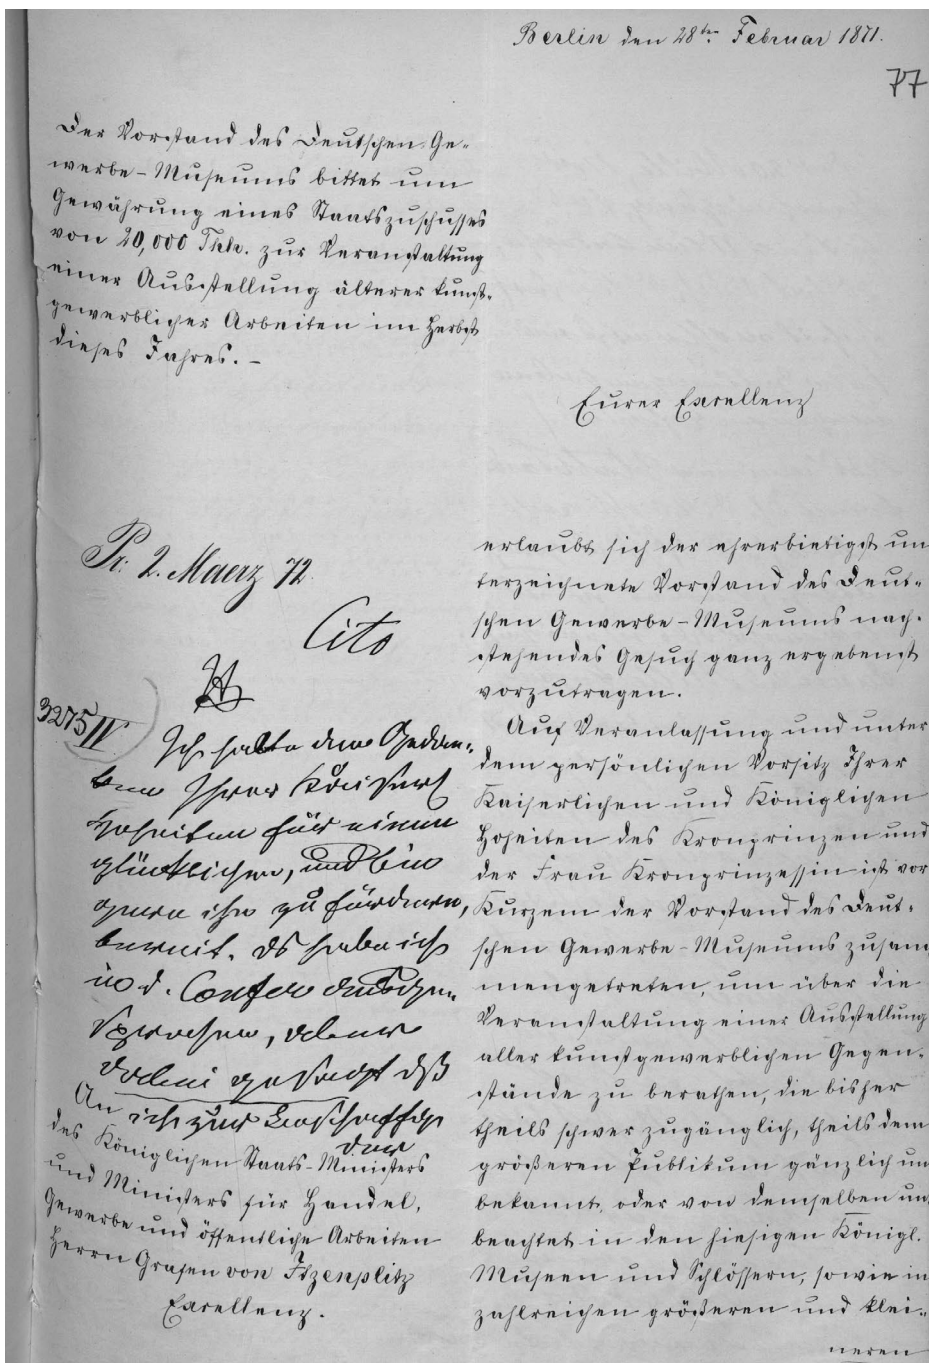 Berlin den 28ten Februar 1871.
77
Der Vorstand des Deutschen Ge-
werbe-Museums bittet um
Gewährung eines Staatszuschusses
von 20,000 Thlr. zur Veranstaltung
einer Ausstellung älterer kunst-
gewerblicher Arbeiten im Herbst
dieses Jahres. -
Eurer Excellenz
Pr. 2. Maerz 72.
Cito
3275 IV
Ich halte den Gedan-
ken Ihrer Kaiserl
Hoheiten für einen
glücklichen, und bin
gern ihn zu fördern,
bereit. Es habe ich
in d. Confer
sprochen, aber
dabei gesagt dß
ich zur Beschaffg
der
An
des Königlichen Staats-Ministers
und Ministers für Handel,
Gewerbe und öffentliche Arbeiten
Herrn Grafen von Itzenplitz
Excellenz.
erlaubt sich der ehrerbietigst un
terzeichnete Vorstand des Deut-
schen Gewerbe-Museums nach-
stehendes Gesuch ganz ergebenst
vorzutragen.
Auf Veranlassung und unter
dem persönlichen Vorsitz Ihrer
Kaiserlichen und Königlichen
Hoheiten des Kronprinzen und
der Frau Kronprinzessin ist vor
Kurzem der Vorstand des Deut-
schen Gewerbe-Museums zusam
mengetreten, um über die
Veranstaltung einer Ausstellung
aller kunstgewerblichen Gegen-
stände zu berathen, die bisher
theils schwer zugänglich, theils dem
größeren Publikum gänzlich un
bekannt, oder von demselben un
beachtet in den hiesigen Königl.
Museen und Schlössern, sowie in
zahlreichen größeren und klei-
neren